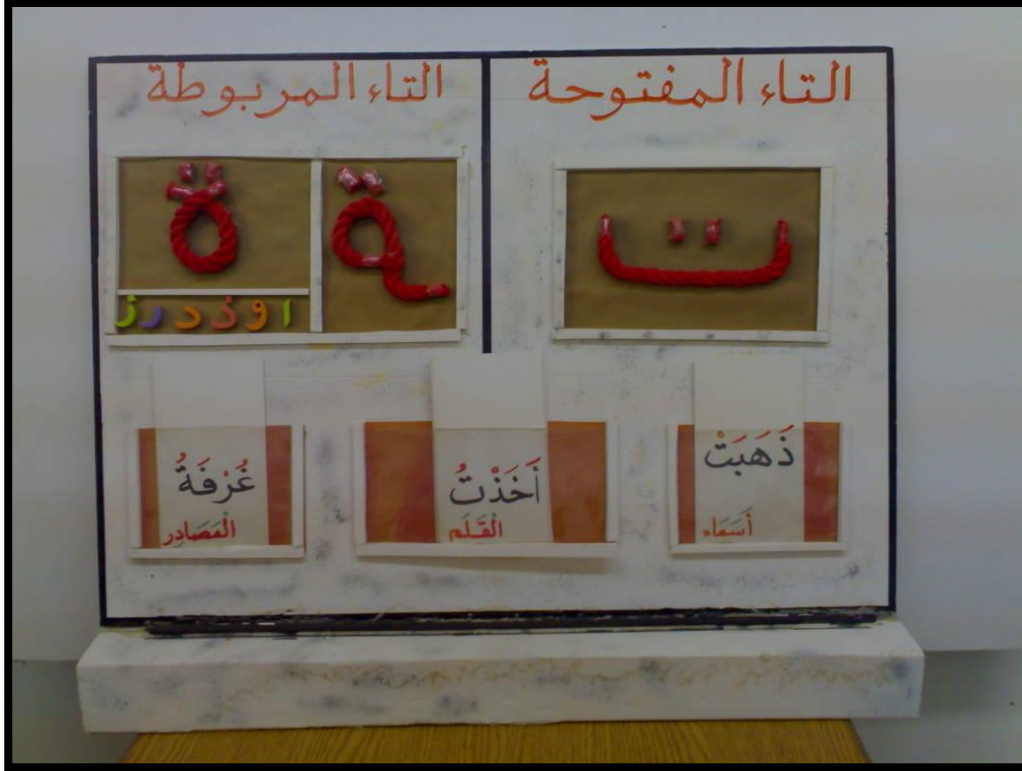 التاء المفتوحة
التاء المربوطة
ت
ـة
ة
ا و ذ د ر ز
ذَهَبَتْ
أسماء
أَخَذْتُ
الْقَلَم
غُرْفَةُ
الْمَصَادِر